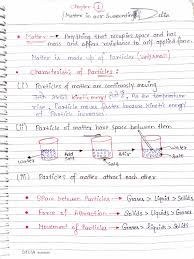 Chapter 1
Matter in our Surrounding
• Matter:- Anything that occupies space and has
mass and offers resistance to any applied force.
Matter is made up of Particles (very small)
• Characteristics of Particles:
(I) Particles of matter are continously moving
kinetic energy As the temperature
rise, Particle moves faster because kinetic energy
of Particle increases.
(II) Particles of matter have space between them
Water
Add
Salt
Salt
Water
(III) Particles of matter attract each other
• Space between Particles → Gases > Liquid > Solids
• Force of Attraction → Solids > Liquids > Gases
• Movement of Particles → Gases > Liquid > Solids